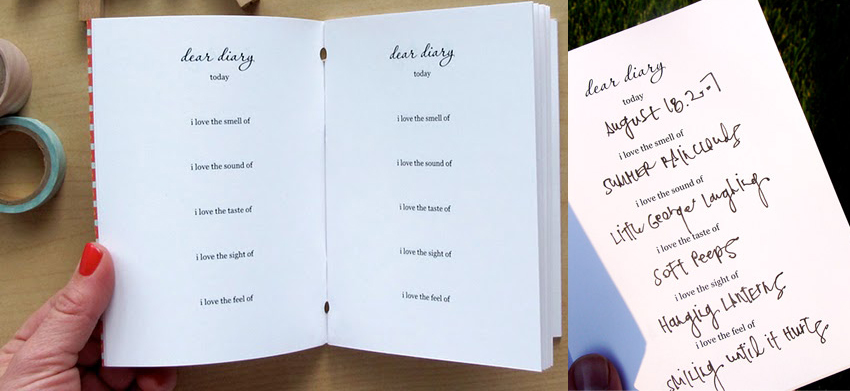 dear diary
today
i love the smell of
i love the sound of
i love the taste of
i love the sight of
i love the feel of
dear diary
today
i love the smell of
i love the sound of
i love the taste of
i love the sight of
i love the feel of
dear diary
today
August 18.2007
i love the smell of
SUMMER RAINClouds
i love the sound of
Little George Laughing
i love the taste of
Soft Peeps
i love the sight of
Hanging LANTERNS
i love the feel of
Smiling until it Hurts